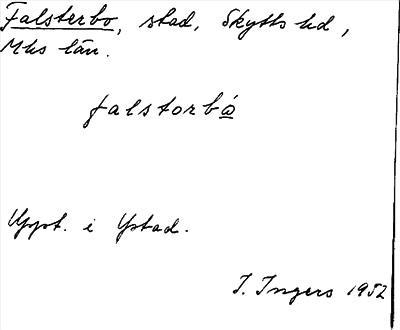 Falsterbo, stad, Skytts hd,
Mhs län.
falstorbó̲
Uppt. i Ystad.
I. Ingers 1952